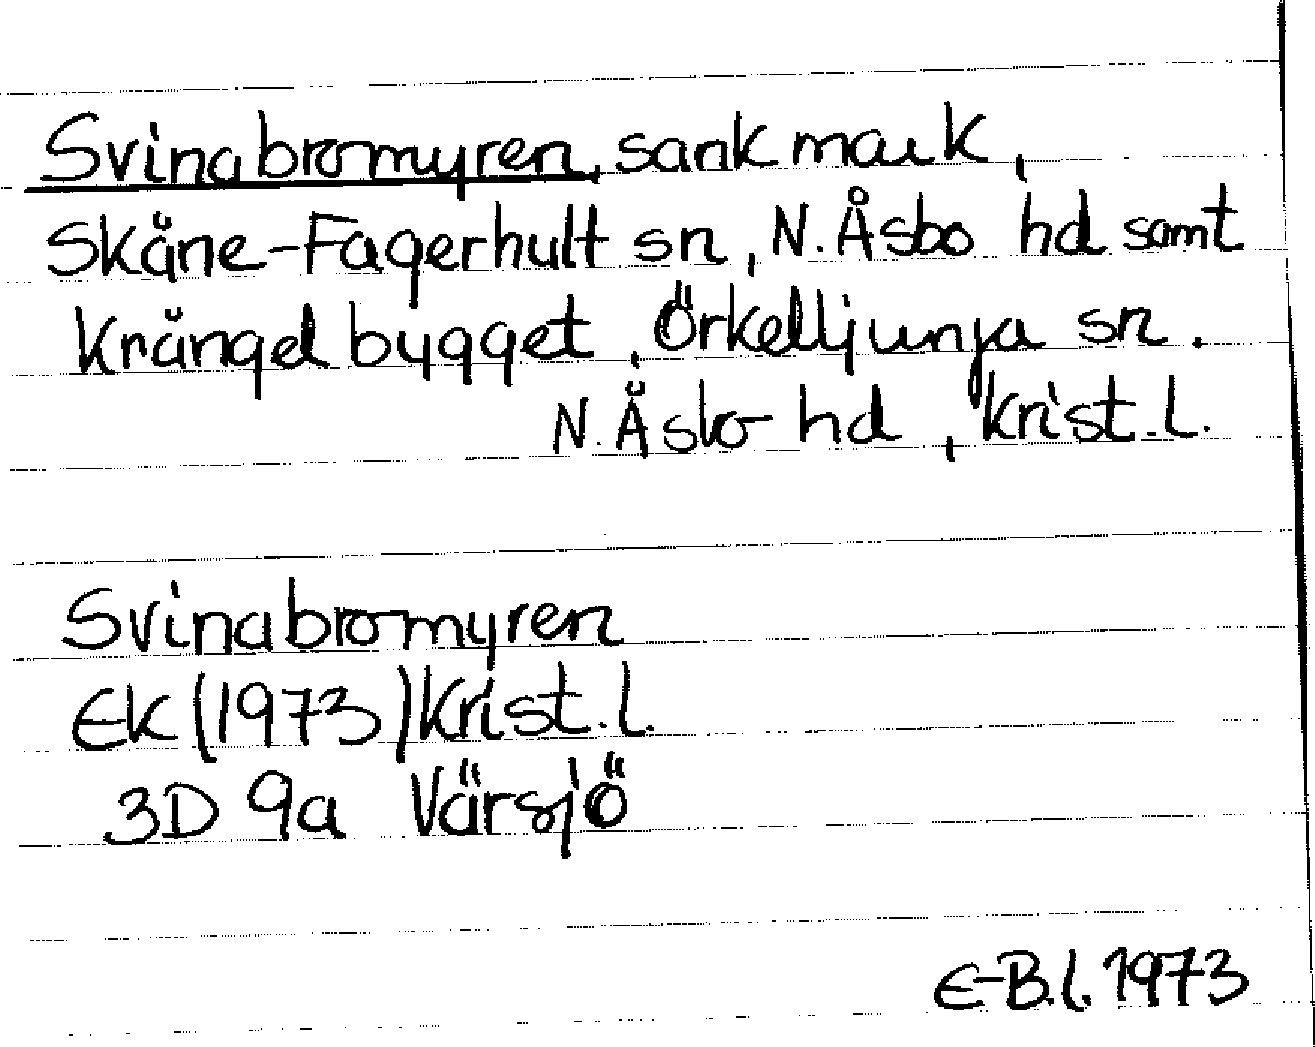 Svinabromyren, sank mark,
Skåne-Fagerhult sn, N. Åsbo hd samt
Krångelbygget, Örkelljunga sn.
N. Åsbo hd, Krist. l.
Svinabromyren
EK (1973) Krist. l.
3D 9a Värsjö
E-B. l. 1973